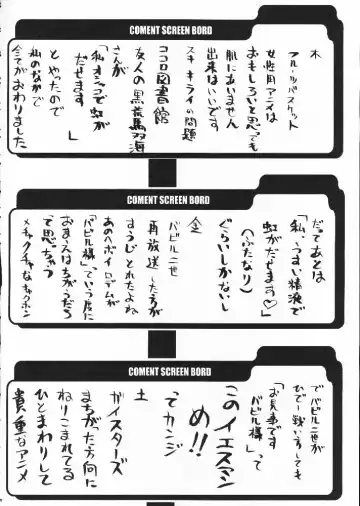 COMENT SCREEN BORD
木
フルーツバスケット
女性用アニメは
おもしろいと思っても
肌にあいません
出来はいいです
スキキライの問題
ココロ図書館
友人の黒荒馬羽海
さんが
「私オシッコで虹が
だせます」
とやったので
私のなかで
全てがおわりました
COMENT SCREEN BORD
だってあとは
「私、うすい精液で
虹がだせます♡」
(ふたなり)
ぐらいしかないし
金
バビル二世
再放送した方が
すうじとれたよね
あのヘボイロデムが
「バビル様」っていう度に
おまえはちがうだろ
って思っちゃう
メチャクチャなキャクホン
COMENT SCREEN BORD
でバビル二世が
ひでー戦いしても
「お見事です
バビル様」って
このイエスマン
め!!
ってカンジ
土
ガイスターズ
まちがった方向に
ねりこまれてる
ひとまわりして
貴重なアニメ